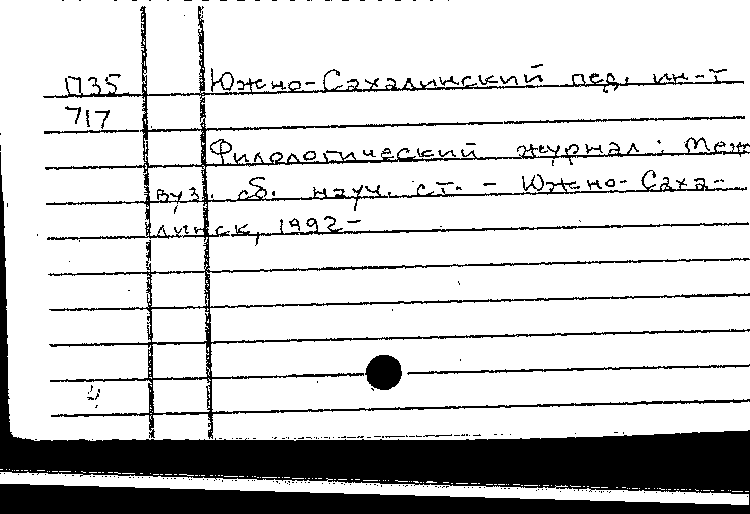 П35 Южно-Сахалинский пед. ин-т
717
Филологический журнал : Меж
вуз. сб. науч. ст. - Южно-Саха-
линск, 1992-
4